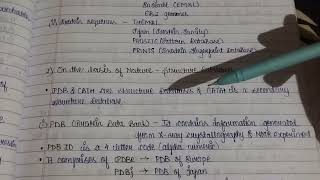 Ensembl (EMBL)
EBI genomes
1) Protein sequence - TrEMBL
Pfam (Protein family)
PROSITE (Pattern Database)
PRINTS (Protein Fingerprint Database)
2) On the basis of Nature - Structure Database
PDB & CATH are structure Databases & CATH is a secondary
structure Database.
(i) PDB (Protein Data Bank) - It contains information generated
from X-ray crystallography & NMR experiment
PDB ID is a 4 letter code (alpha numeric)
It comprises of PDBe → PDB of Europe
PDBj → PDB of Japan